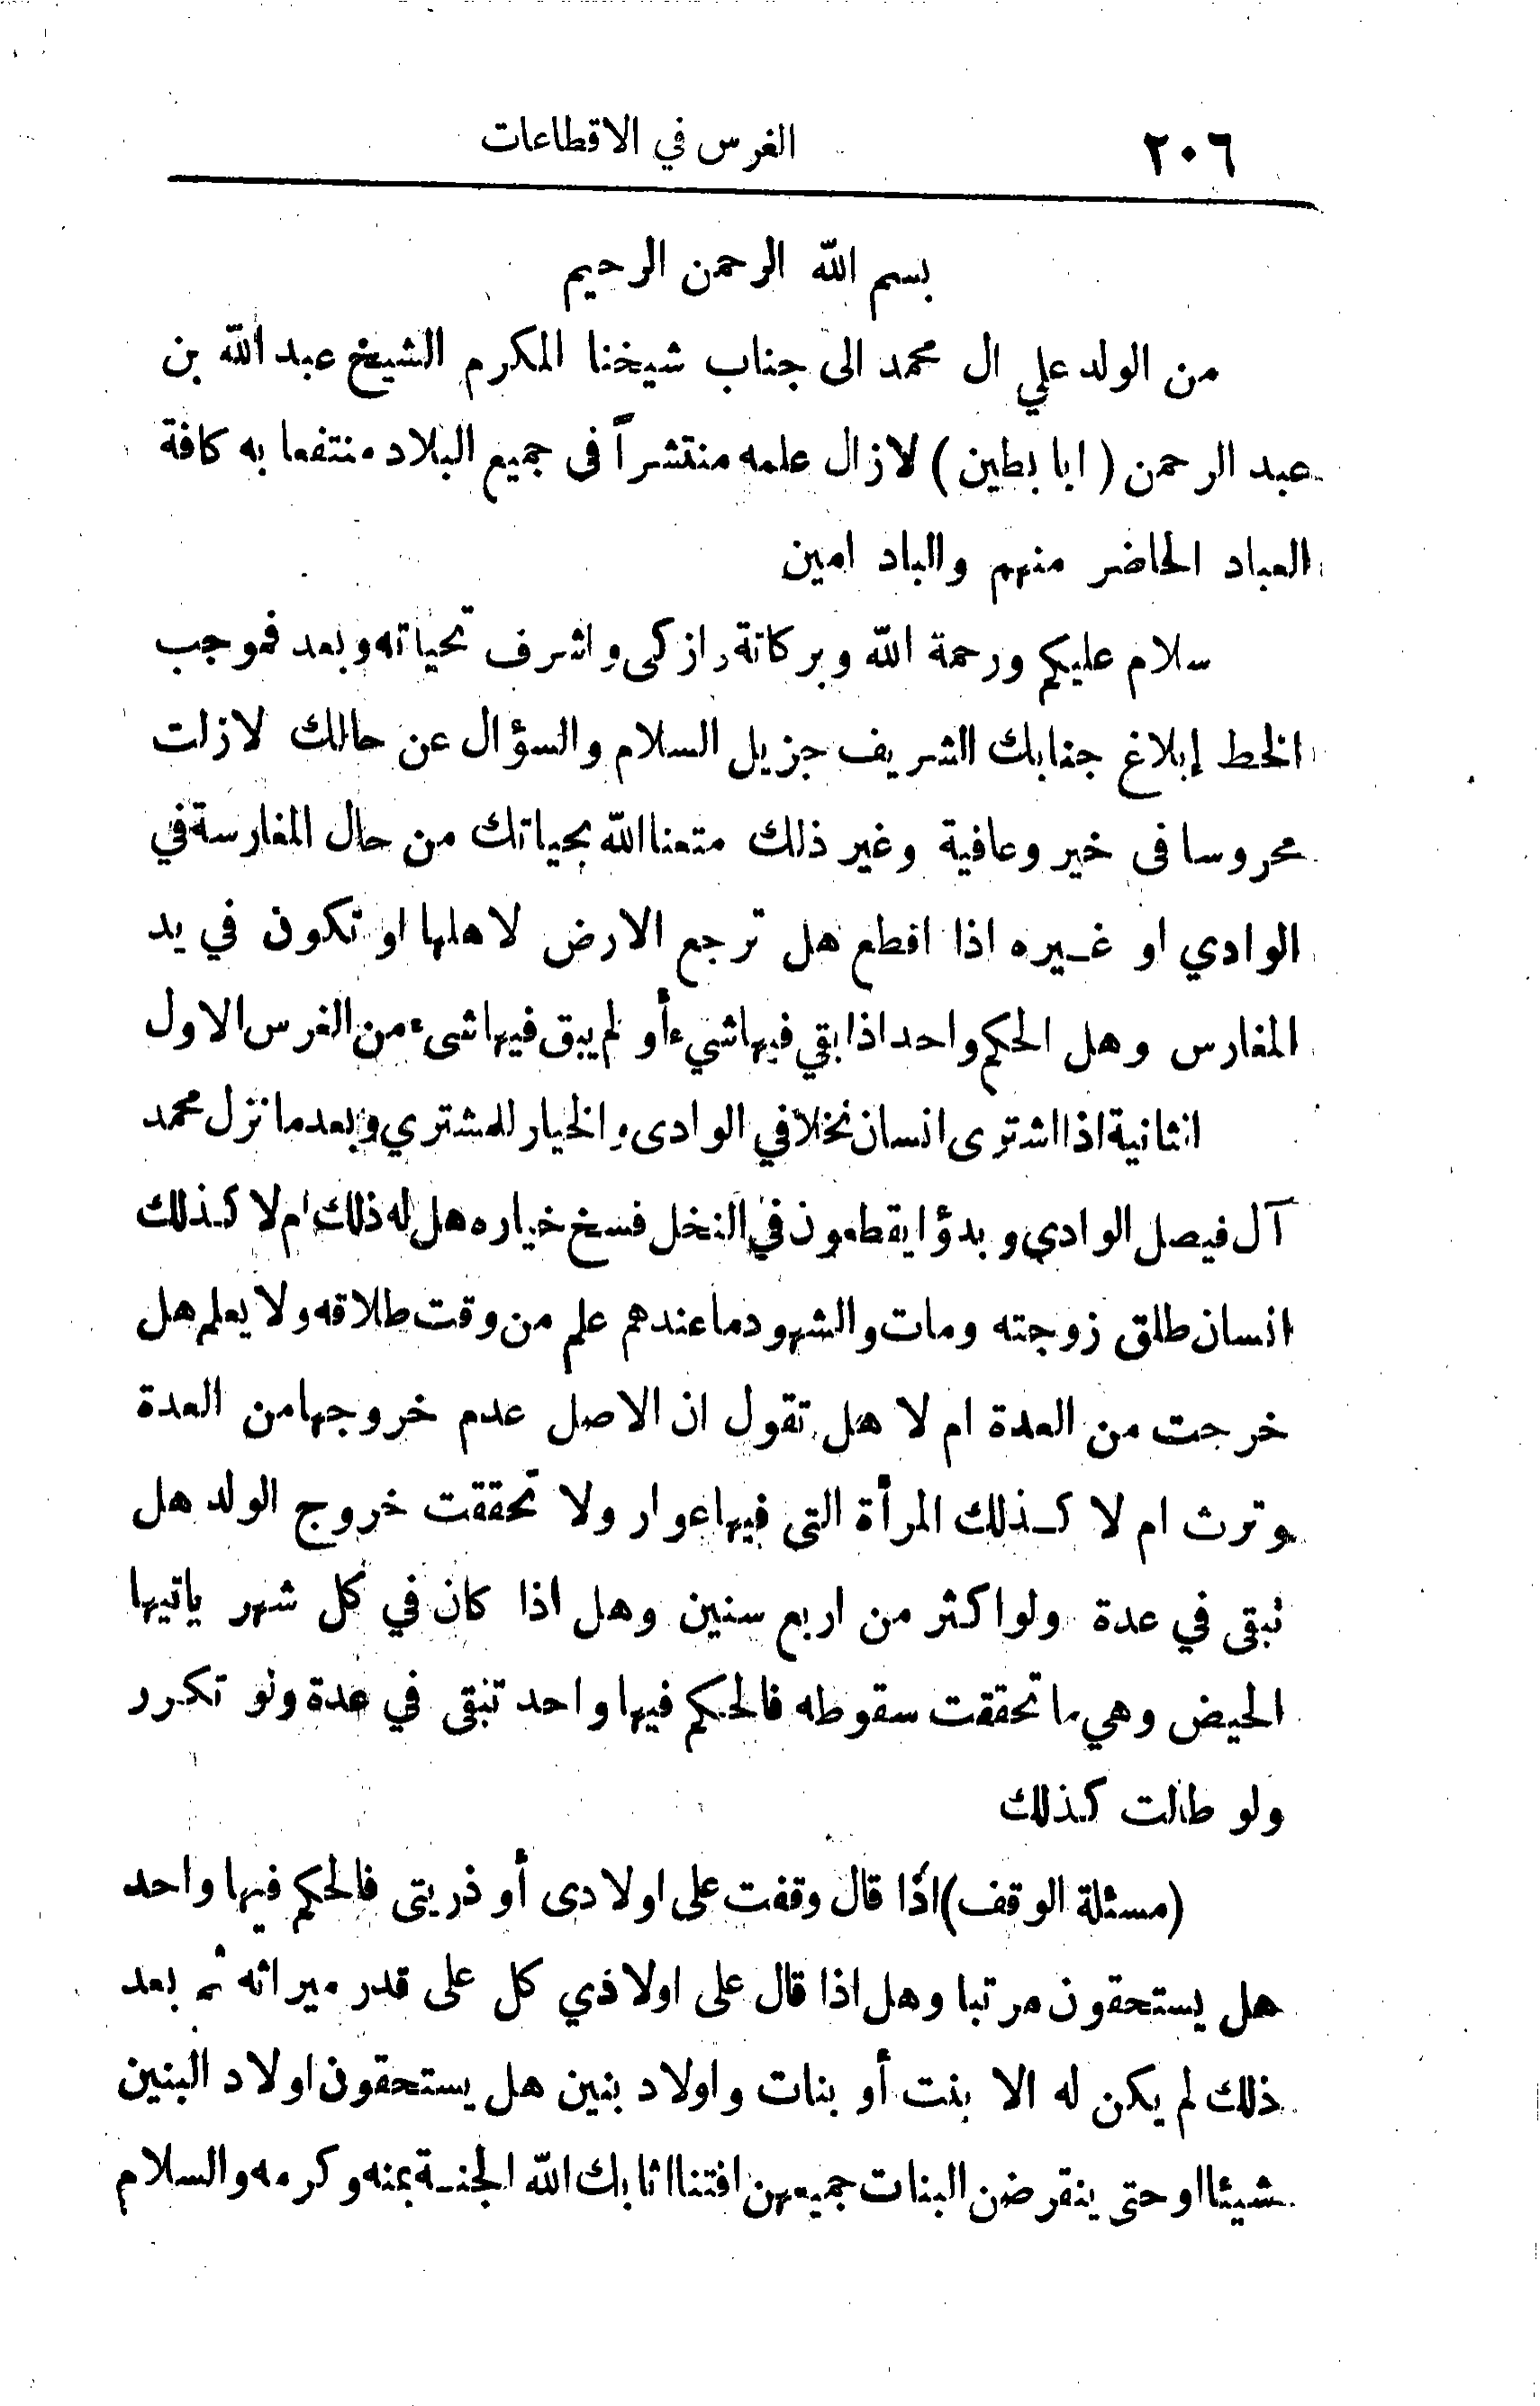 ٢٠٦ الغرس في الاقطاعات
بسم الله الرحمن الرحيم
من الولد علي ال محمد الى جناب شيخنا المكرم الشيخ عبد الله بن
عبد الرحمن ( ابا بطين ) لازال علمه منتشراً فى جميع البلاد منتفعا به كافة
العباد الحاضر منهم والباد امين
سلام عليكم ورحمة الله وبركاتة وازكى واشرف تحياته وبعد فموجب
الخط إبلاغ جنابك الشريف جزيل السلام والسؤال عن حالك لازلت
محروسا فى خير وعافية وغير ذلك متعنا الله بحياتك من حال المغارسة في
الوادي او غيره اذا اقطع هل ترجع الارض لاهلها او تكون في يد
المغارس وهل الحكم واحد اذا بقي فيها شيء أو لم يبق فيها شىء من الغرس الاول
الثانية اذا اشترى انسان نخلا في الوادى والخيار للمشتري وبعد ما نزل محمد
آل فيصل الوادي وبدؤا يقطعون في النخل فسخ خياره هل له ذلك ام لا كذلك
انسان طلق زوجته ومات والشهود ما عندهم علم من وقت طلاقه ولا يعلم هل
خرجت من العدة ام لا هل تقول ان الاصل عدم خروجها من العدة
وترث ام لا كذلك المرأة التى فيها عوار ولا تحققت خروج الولد هل
تبقى في عدة ولو اكثر من اربع سنين وهل اذا كان في كل شهر ياتيها
الحيض وهي ما تحققت سقوطه فالحكم فيها واحد تبقى في عدة ولو تكرر
ولو طالت كذلك
(مسئلة الوقف) اذا قال وقفت على اولادى أو ذريتى فالحكم فيها واحد
هل يستحقون مرتبا وهل اذا قال على اولادي كل على قدر ميراثه ثم بعد
ذلك لم يكن له الا بنت أو بنات واولاد بنين هل يستحقون اولاد البنين
شيئا او حتى ينقرضن البنات جميعهن افتنا اثابك الله الجنة بمنه وكرمه والسلام